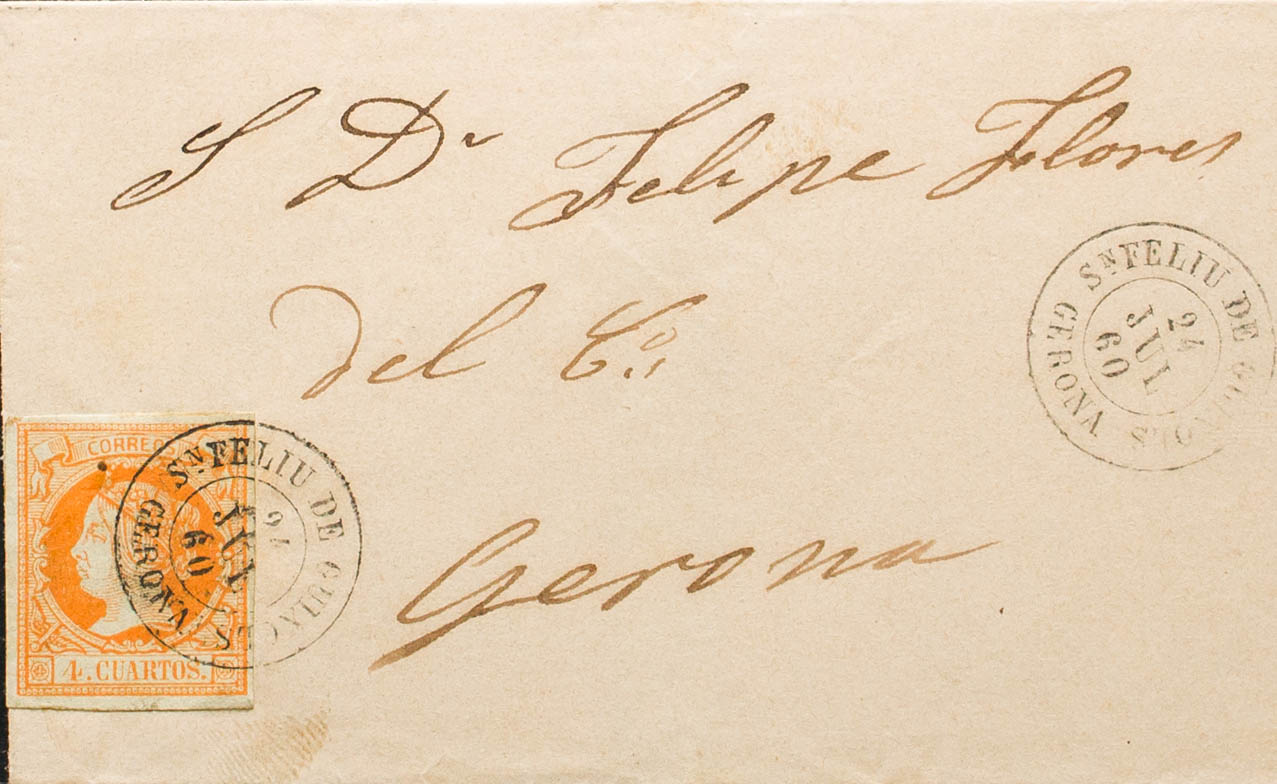 S Dn Felipe Flores
del Co.
Gerona
Sn FELIU DE GUIXOLS
24
JUL
60
GERONA
CORREOS
4. CUARTOS.
Sn FELIU DE GUIXOLS
24
JUL
60
GERONA